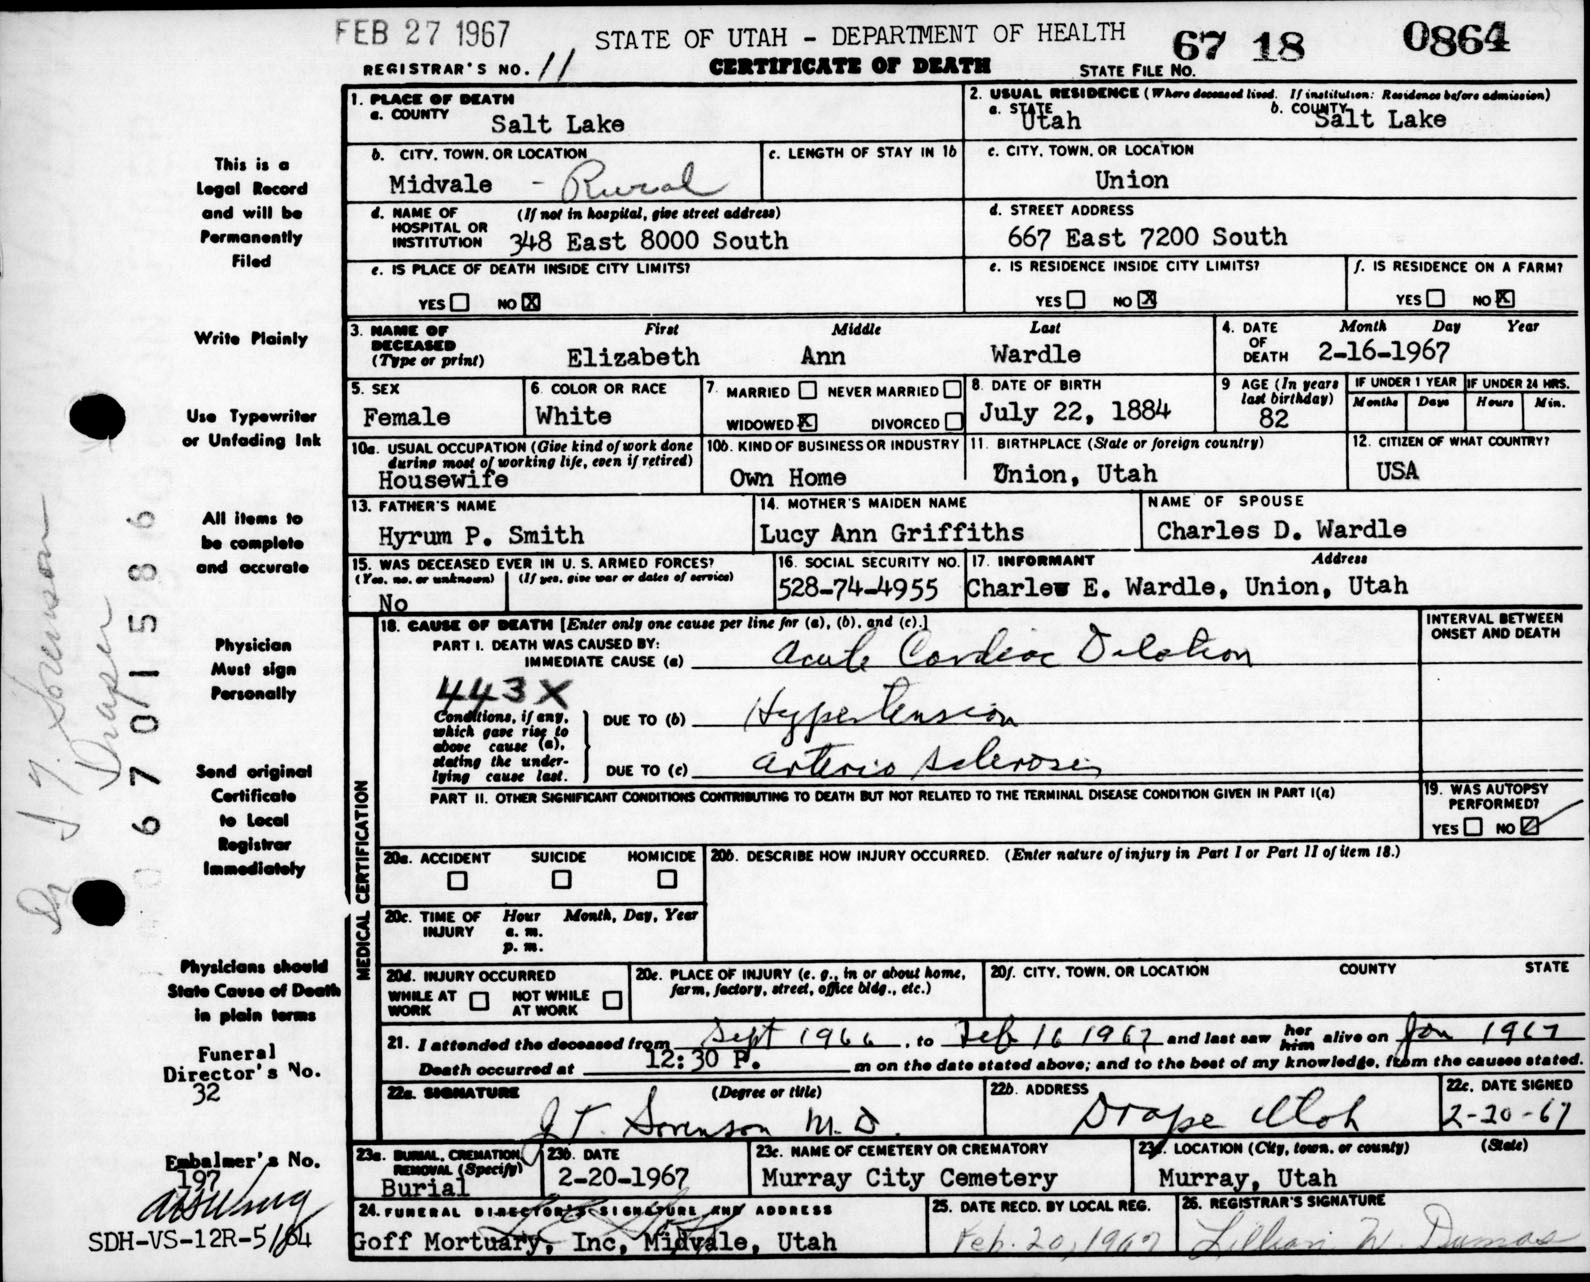 FEB 27 1967
STATE OF UTAH - DEPARTMENT OF HEALTH
67 18 0864
REGISTRAR'S NO. 11
CERTIFICATE OF DEATH
STATE FILE NO.
1. PLACE OF DEATH
a. COUNTY
Salt Lake
2. USUAL RESIDENCE (Where deceased lived. If institution: Residence before admission)
a. STATE
Utah
b. COUNTY
Salt Lake
b. CITY, TOWN, OR LOCATION
Midvale - Rural
c. LENGTH OF STAY IN 1b
c. CITY, TOWN, OR LOCATION
Union
d. NAME OF HOSPITAL OR INSTITUTION
(If not in hospital, give street address)
348 East 8000 South
d. STREET ADDRESS
667 East 7200 South
e. IS PLACE OF DEATH INSIDE CITY LIMITS?
YES NO X
e. IS RESIDENCE INSIDE CITY LIMITS?
YES NO X
f. IS RESIDENCE ON A FARM?
YES NO X
3. NAME OF DECEASED
(Type or print)
First Middle Last
Elizabeth Ann Wardle
4. DATE OF DEATH
Month Day Year
2-16-1967
5. SEX
Female
6. COLOR OR RACE
White
7. MARRIED NEVER MARRIED
WIDOWED X DIVORCED
8. DATE OF BIRTH
July 22, 1884
9 AGE (In years last birthday)
82
IF UNDER 1 YEAR
Months Days
IF UNDER 24 HRS.
Hours Min.
10a. USUAL OCCUPATION (Give kind of work done during most of working life, even if retired)
Housewife
10b. KIND OF BUSINESS OR INDUSTRY
Own Home
11. BIRTHPLACE (State or foreign country)
Union, Utah
12. CITIZEN OF WHAT COUNTRY?
USA
13. FATHER'S NAME
Hyrum P. Smith
14. MOTHER'S MAIDEN NAME
Lucy Ann Griffiths
NAME OF SPOUSE
Charles D. Wardle
15. WAS DECEASED EVER IN U. S. ARMED FORCES?
(Yes, no, or unknown) (If yes, give war or dates of service)
No
16. SOCIAL SECURITY NO.
528-74-4955
17. INFORMANT Address
Charles E. Wardle, Union, Utah
MEDICAL CERTIFICATION
18. CAUSE OF DEATH [Enter only one cause per line for (a), (b), and (c).]
INTERVAL BETWEEN ONSET AND DEATH
PART I. DEATH WAS CAUSED BY:
IMMEDIATE CAUSE (a) Acute Cardiac Dilation
443X
Conditions, if any, which gave rise to above cause (a), stating the underlying cause last.
DUE TO (b) Hypertension
DUE TO (c) arterio sclerosis
PART II. OTHER SIGNIFICANT CONDITIONS CONTRIBUTING TO DEATH BUT NOT RELATED TO THE TERMINAL DISEASE CONDITION GIVEN IN PART I(a)
19. WAS AUTOPSY PERFORMED?
YES NO
20a. ACCIDENT SUICIDE HOMICIDE
20b. DESCRIBE HOW INJURY OCCURRED. (Enter nature of injury in Part I or Part II of item 18.)
20c. TIME OF INJURY
Hour Month, Day, Year
a. m.
p. m.
20d. INJURY OCCURRED
WHILE AT WORK NOT WHILE AT WORK
20e. PLACE OF INJURY (e. g., in or about home, farm, factory, street, office bldg., etc.)
20f. CITY, TOWN, OR LOCATION COUNTY STATE
21. I attended the deceased from Sept 1966, to Feb 16 1967 and last saw her him alive on Jan 1967
Death occurred at 12:30 P. m on the date stated above; and to the best of my knowledge, from the causes stated.
22a. SIGNATURE (Degree or title)
J T. Sorenson M.D.
22b. ADDRESS
Drape Utah
22c. DATE SIGNED
2-20-67
23a. BURIAL, CREMATION, REMOVAL (Specify)
Burial
23b. DATE
2-20-1967
23c. NAME OF CEMETERY OR CREMATORY
Murray City Cemetery
23d. LOCATION (City, town, or county) (State)
Murray, Utah
24. FUNERAL DIRECTOR'S SIGNATURE AND ADDRESS
Goff Mortuary, Inc, Midvale, Utah
25. DATE RECD. BY LOCAL REG.
Feb. 20, 1967
26. REGISTRAR'S SIGNATURE
Lillian W. Dumas
This is a
Legal Record
and will be
Permanently
Filed
Write Plainly
Use Typewriter
or Unfading Ink
All items to
be complete
and accurate
Physician
Must sign
Personally
Send original
Certificate
to Local
Registrar
Immediately
Physicians should
State Cause of Death
in plain terms
Funeral
Director's No.
32
Embalmer's No.
197
SDH-VS-12R-5/64
Dr J T. Sorenson
Draper
6701586